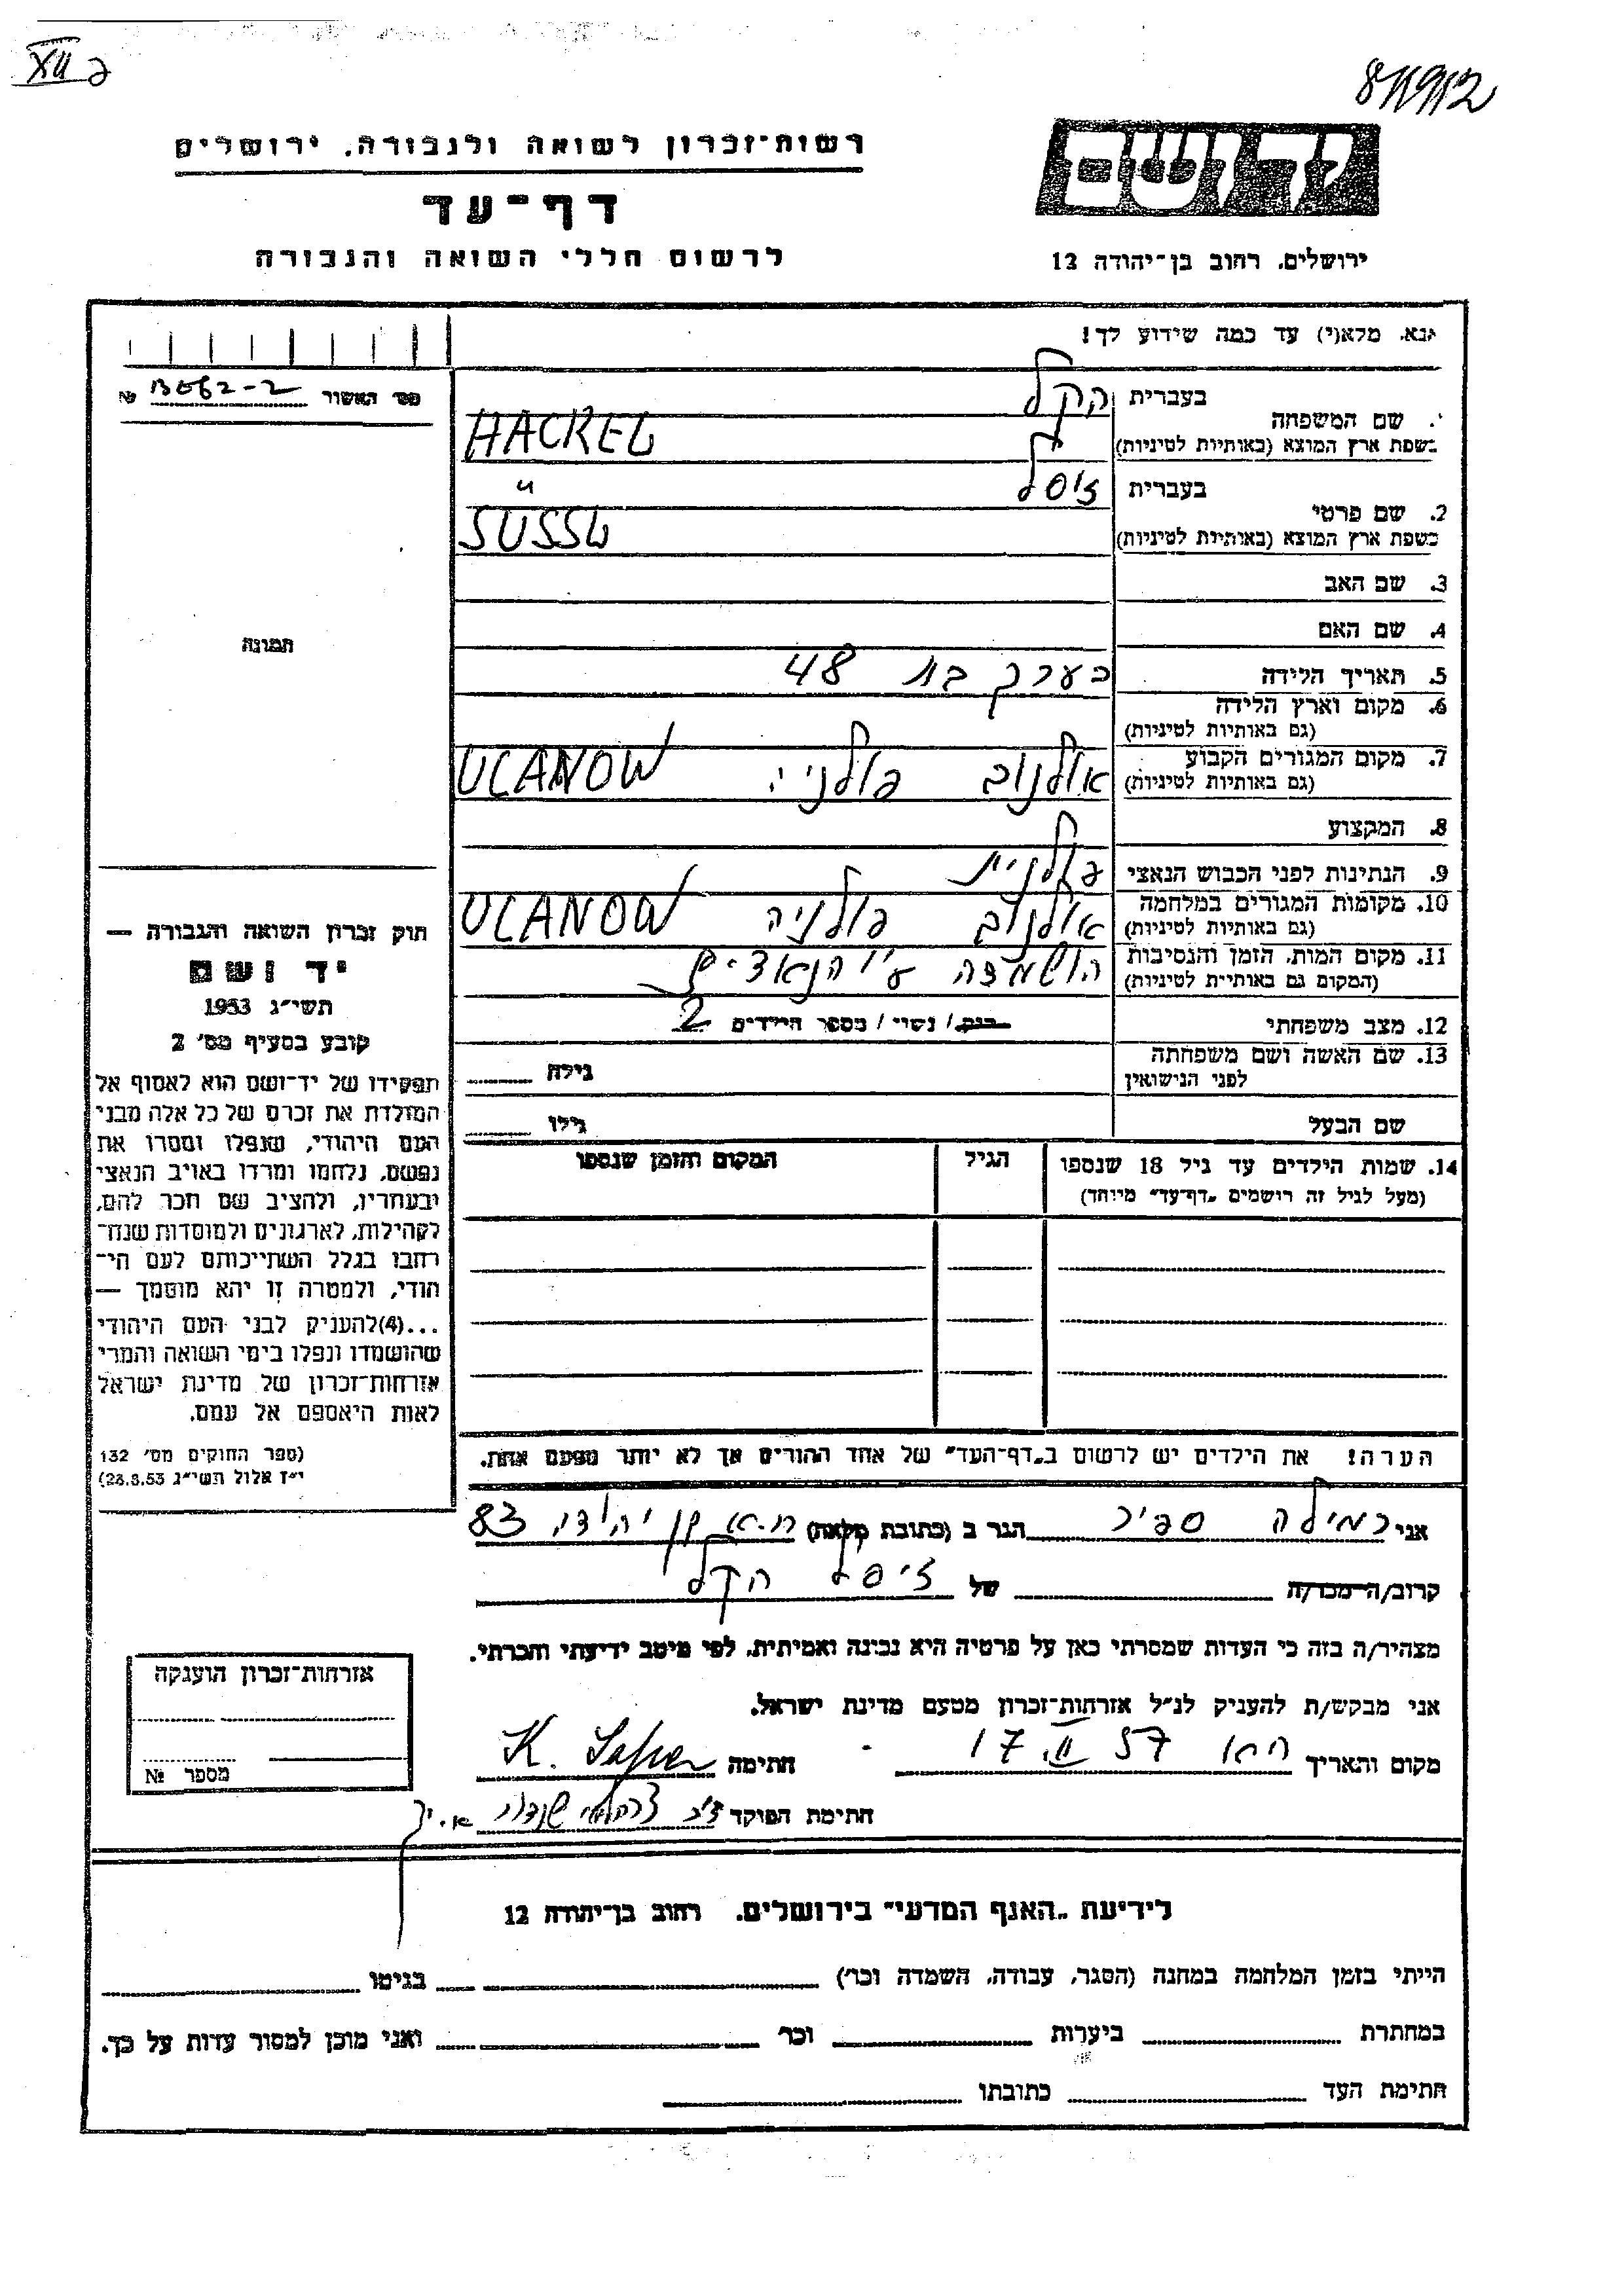 XII ב
811912
רשות־זכרון לשואה ולגבורה, ירושלים
דף־עד
לרשום חללי השואה והגבורה
יד ושם
ירושלים, רחוב בן־יהודה 12
נא מלא(י) עד כמה שידוע לך!
מס׳ האשור № 13082-2
1. שם המשפחה
בעברית הקל
בשפת ארץ המוצא (באותיות לטיניות) HACKEL
2. שם פרטי
בעברית זיסל
בשפת ארץ המוצא (באותיות לטיניות) SÜSSL
3. שם האב
4. שם האם
5. תאריך הלידה בערך בת 48
6. מקום וארץ הלידה
(גם באותיות לטיניות)
7. מקום המגורים הקבוע אולנוב פולניה ULANOW
(גם באותיות לטיניות)
8. המקצוע
9. הנתינות לפני הכבוש הנאצי פולנית
10. מקומות המגורים במלחמה אולנוב פולניה ULANOW
(גם באותיות לטיניות)
11. מקום המות, הזמן והנסיבות הושמדה ע״י הנאצים
(המקום גם באותיית לטיניות)
12. מצב משפחתי רווק / נשוי / מספר הילדים 2
13. שם האשה ושם משפחתה
לפני הנישואין
גילה
שם הבעל
גילו
14. שמות הילדים עד גיל 18 שנספו
(מעל לגיל זה רושמים „דף־עד״ מיוחד)
הגיל
המקום והזמן שנספו
הערה! את הילדים יש לרשום ב„דף־העד״ של אחד ההורים אך לא יותר מפעם אחת.
תמונה
חוק זכרון השואה והגבורה —
יד ושם
תשי״ג 1953
קובע בסעיף מס׳ 2
תפקידו של יד־ושם הוא לאסוף אל
המולדת את זכרם של כל אלה מבני
העם היהודי, שנפלו ומסרו את
נפשם, נלחמו ומרדו באויב הנאצי
ובעוזריו, ולהציב שם וזכר להם,
לקהילות, לארגונים ולמוסדות שנח־
רבו בגלל השתייכותם לעם הי־
הודי, ולמטרה זו יהא מוסמך —
...(4)להעניק לבני העם היהודי
שהושמדו ונפלו בימי השואה והמרי
אזרחות־זכרון של מדינת ישראל
לאות היאספם אל עמם.
(ספר החוקים מס׳ 132
י״ז אלול תשי״ג 28.8.53)
אני כמילה ספיר הגר ב (כתובת מלאה) ת.א בן יהודה 83
קרוב/ה מכר/ה של זיסל הקל
מצהיר/ה בזה כי העדות שמסרתי כאן על פרטיה היא נכונה ואמיתית, לפי מיטב ידיעתי והכרתי.
אני מבקש/ת להעניק לנ״ל אזרחות־זכרון מטעם מדינת ישראל.
מקום והתאריך ת״א 17 II 57 חתימה K. Sapir
חתימת הפוקד
אזרחות־זכרון הוענקה
מספר №
לידיעת „האגף המדעי״ בירושלים, רחוב בן־יהודה 12
הייתי בזמן המלחמה במחנה (הסגר, עבודה, השמדה וכר׳) בגיטו
במחתרת ביערות וכר׳ ואני מוכן למסור עדות על כך.
חתימת העד כתובתו